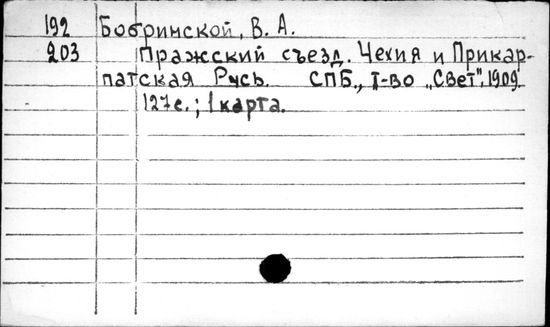 192 Бобринской, В. А.
203 Пражский съезд. Чехия и Прикар-
патская Русь. СПБ., Т-во „Свет", 1909.
127с.; 1 карта.